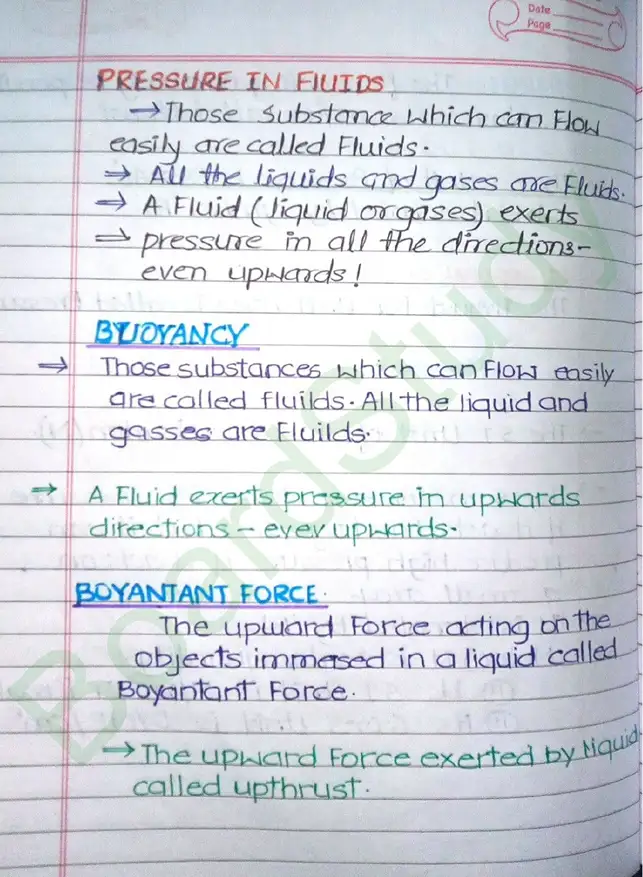 Date
Page
PRESSURE IN FLUIDS
→ Those substance which can Flow
easily are called Fluids.
→ All the liquids and gases are Fluids.
→ A Fluid (liquid or gases) exerts
→ pressure in all the directions-
even upwards!
BYUOYANCY
→ Those substances which can Flow easily
are called fluilds. All the liquid and
gasses are Fluilds.
→ A Fluid exerts pressure in upwards
directions - ever upwards.
BOYANTANT FORCE.
The upward Force acting on the
objects immersed in a liquid called
Boyantant Force.
→ The upward Force exerted by liquid
called upthrust.
BoardStudy